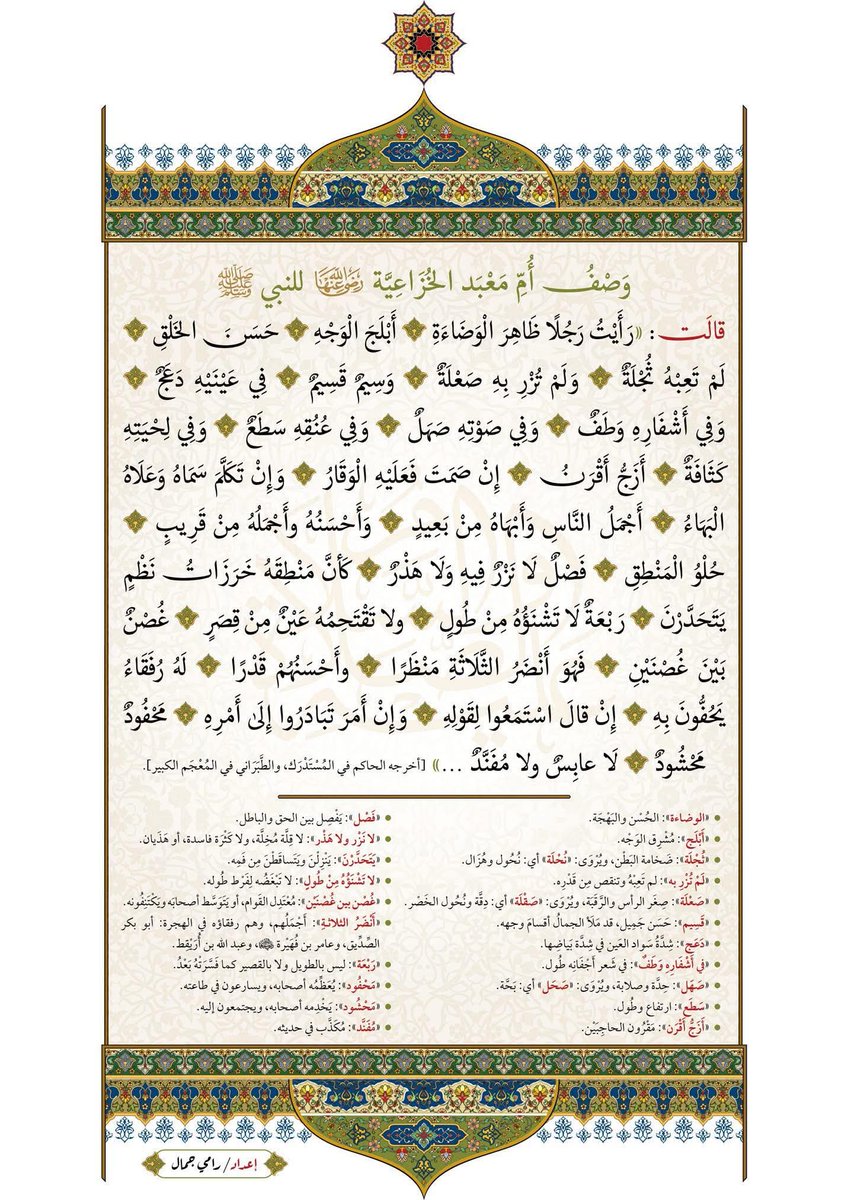 وَصْفُ أُمِّ مَعْبَد الخُزَاعِيَّة رَضِيَ اللَّهُ عَنْهَا للنبي ﷺ
قالَت: «رَأَيْتُ رَجُلًا ظَاهِرَ الْوَضَاءَةِ أَبْلَجَ الْوَجْهِ حَسَنَ الخَلْقِ
لَمْ تَعِبْهُ ثُجْلَةٌ وَلَمْ تُزْرِ بِهِ صَعْلَةٌ وَسِيمٌ قَسِيمٌ فِي عَيْنَيْهِ دَعَجٌ
وَفِي أَشْفَارِهِ وَطَفٌ وَفِي صَوْتِهِ صَهَلٌ وَفِي عُنُقِهِ سَطَعٌ وَفِي لِحْيَتِهِ
كَثَافَةٌ أَزَجُّ أَقْرَنُ إِنْ صَمَتَ فَعَلَيْهِ الْوَقَارُ وَإِنْ تَكَلَّمَ سَمَاهُ وَعَلَاهُ
الْبَهَاءُ أَجْمَلُ النَّاسِ وَأَبْهَاهُ مِنْ بَعِيدٍ وَأَحْسَنُهُ وأَجْمَلُهُ مِنْ قَرِيبٍ
حُلْوُ الْمَنْطِقِ فَصْلٌ لَا نَزْرٌ فِيهِ وَلَا هَذْرٌ كَأَنَّ مَنْطِقَهُ خَرَزَاتُ نَظْمٍ
يَتَحَدَّرْنَ رَبْعَةٌ لَا تَشْنَؤُهُ مِنْ طُولٍ ولا تَقْتَحِمُهُ عَيْنٌ مِنْ قِصَرٍ غُصْنٌ
بَيْنَ غُصْنَيْنِ فَهُوَ أَنْضَرُ الثَّلَاثَةِ مَنْظَرًا وأَحْسَنُهُمْ قَدْرًا لَهُ رُفَقَاءُ
يَحُفُّونَ بِهِ إِنْ قالَ اسْتَمَعُوا لِقَوْلِهِ وَإِنْ أَمَرَ تَبَادَرُوا إِلَى أَمْرِهِ مَحْفُودٌ
مَحْشُودٌ لَا عابِسٌ ولا مُفَنَّدٌ ...» [أخرجه الحاكم في المُسْتَدْرَك، والطَّبَرَاني في المُعْجَم الكبير].
«الوضاءة»: الحُسْن والبَهْجَة.
«أَبْلَج»: مُشْرِق الوَجْه.
«ثُجْلَة»: ضَخامة البَطْن، ويُرْوَى: «نُحْلَة» أي: نُحُول وهُزَال.
«لَمْ تُزْرِ به»: لم تَعِبْهُ وتنقص مِن قَدْرِه.
«صَعْلَة»: صِغَر الرأس والرَّقَبَة، ويُرْوَى: «صَقْلَة» أي: دِقَّة ونُحُول الخَصْر.
«قَسِيم»: حَسَن جَمِيل، قد مَلَأ الجمالُ أقسامَ وجهه.
«دَعَج»: شِدَّةُ سَواد العَين في شِدَّة بَيَاضِها.
«في أَشْفَارِه وَطَفٌ»: في شَعر أَجْفَانِه طُول.
«صَهَل»: حِدَّة وصلابة، ويُرْوَى: «صَحَل» أي: بَحَّة.
«سَطَع»: ارتفاع وطُول.
«أَزَجُّ أَقْرَن»: مَقْرُون الحاجِبَيْن.
«فَصْل»: يَفْصِل بين الحق والباطل.
«لا نَزْر ولا هَذْر»: لا قِلَّة مُخِلَّة، ولا كَثْرَة فاسدة، أو هَذَيان.
«يَتَحَدَّرْن»: يَنْزِلْنَ ويَتَساقَطْنَ مِن فَمِه.
«لا تَشْنَؤُهُ مِنْ طُولٍ»: لا تَبْغَضُه لِفَرْط طُوله.
«غُصْن بين غُصْنَيْن»: مُعْتَدِل القَوام، أو يَتَوَسَّط أصحابَه ويَكْتَنِفُونه.
«أَنْضَرُ الثلاثةِ»: أَجْمَلُهم، وهم رفقاؤه في الهجرة: أبو بكر
الصِّدِّيق، وعامر بن فُهَيْرة ﵄، وعبد الله بن أُرَيْقِط.
«رَبْعَة»: ليس بالطويل ولا بالقصير كما فَسَّرَتْهُ بَعْدُ.
«مَحْفُود»: يُعَظِّمُه أصحابه، ويسارعون في طاعته.
«مَحْشُود»: يَخْدِمه أصحابه، ويجتمعون إليه.
«مُفَنَّد»: مُكَذَّب في حديثه.
إعداد/ رامي جمال